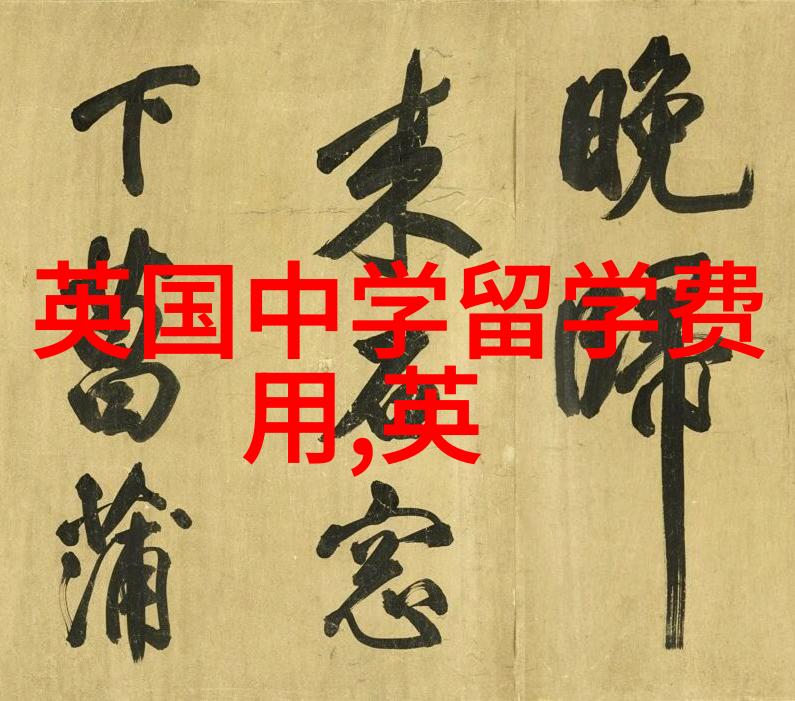 晚歸
来石窓
下菖蒲
英国中学留学费
用,英